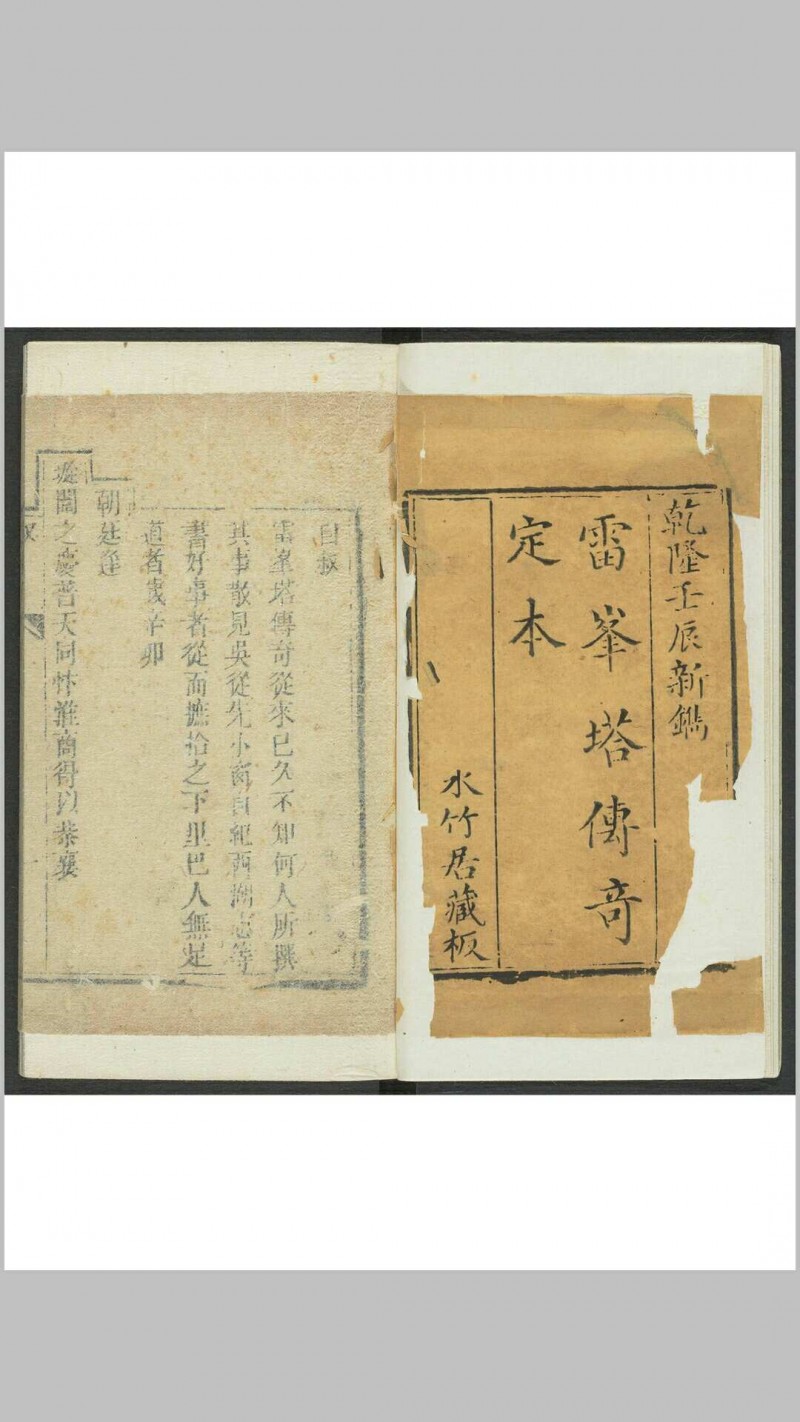 乾隆壬辰新鐫
雷峯塔傳奇
定本
水竹居藏板
自敘
雷峯塔傳奇從來已久不知何人所撰
其事散見吳從先小窗自紀西湖志等
書好事者從而摭拾之下里巴人無足
道者歲辛卯
朝廷逢
璇闈之慶普天同忭淮商得以恭襄